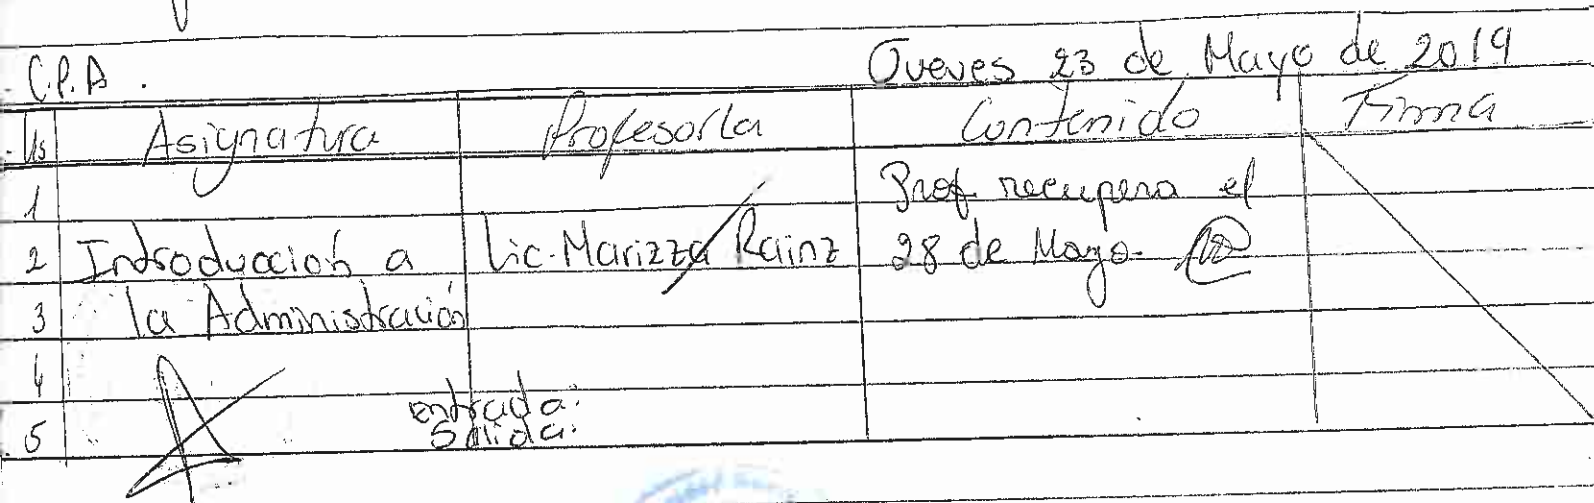 C.P.A. Jueves 23 de Mayo de 2019
Hs Asignatura Profesor/a Contenido Firma
1 Prof. recupera el
2 Introducción a Lic. Marizza Rainz 28 de Mayo.
3 la Administración
4
entrada:
5 Salida: